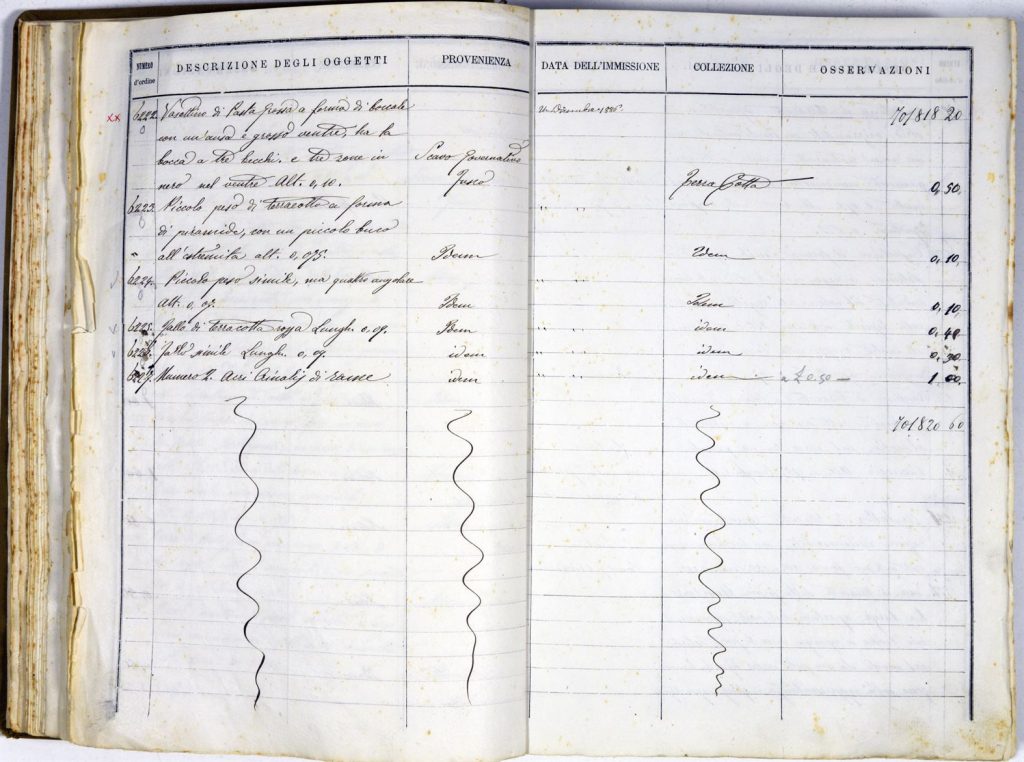 NUMERO d'ordine DESCRIZIONE DEGLI OGGETTI PROVENIENZA DATA DELL'IMMISSIONE COLLEZIONE OSSERVAZIONI
70/818 20
xx 6222 Vasettino di Pasta grossa a forma di boccale
con un'ansa e grosso ventre, ha la
bocca a tre becchi e tre zone in Scavo Governativo
nero nel ventre Alt. 0,10. Terra Cotta 0,50
6223. Piccolo peso di terracotta a forma " "
di piramide, con un piccolo buco
all'estremità alt. 0,075. Idem Idem 0,10
6224. Piccolo peso simile, ma quattro angolare " "
Alt. 0,07. Idem Idem 0,10
x 6225. Gallo di terracotta rozza Lungh. 0,07. Idem " " idem 0,40
6226. Gallo simile Lungh. 0,07. idem " " idem 0,30
6227. Numero 2. di rame idem " " idem a £ 0.50 — 1 00
70/820 60